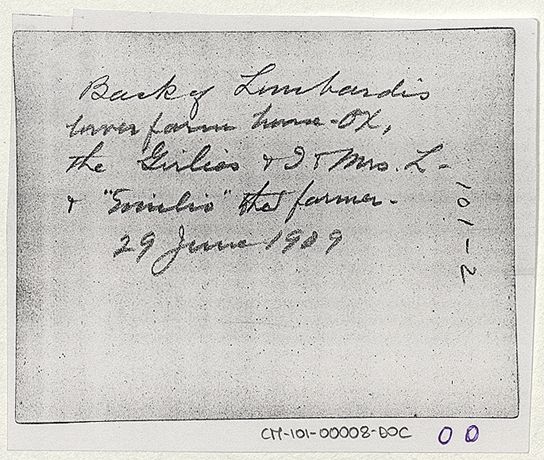 Back of Lombardi's
lower farm house - Ox,
the Girlies & I & Mrs. L -
& "Emilio" the farmer -
29 June 1909
101-2
CM-101-00008-DOC 00